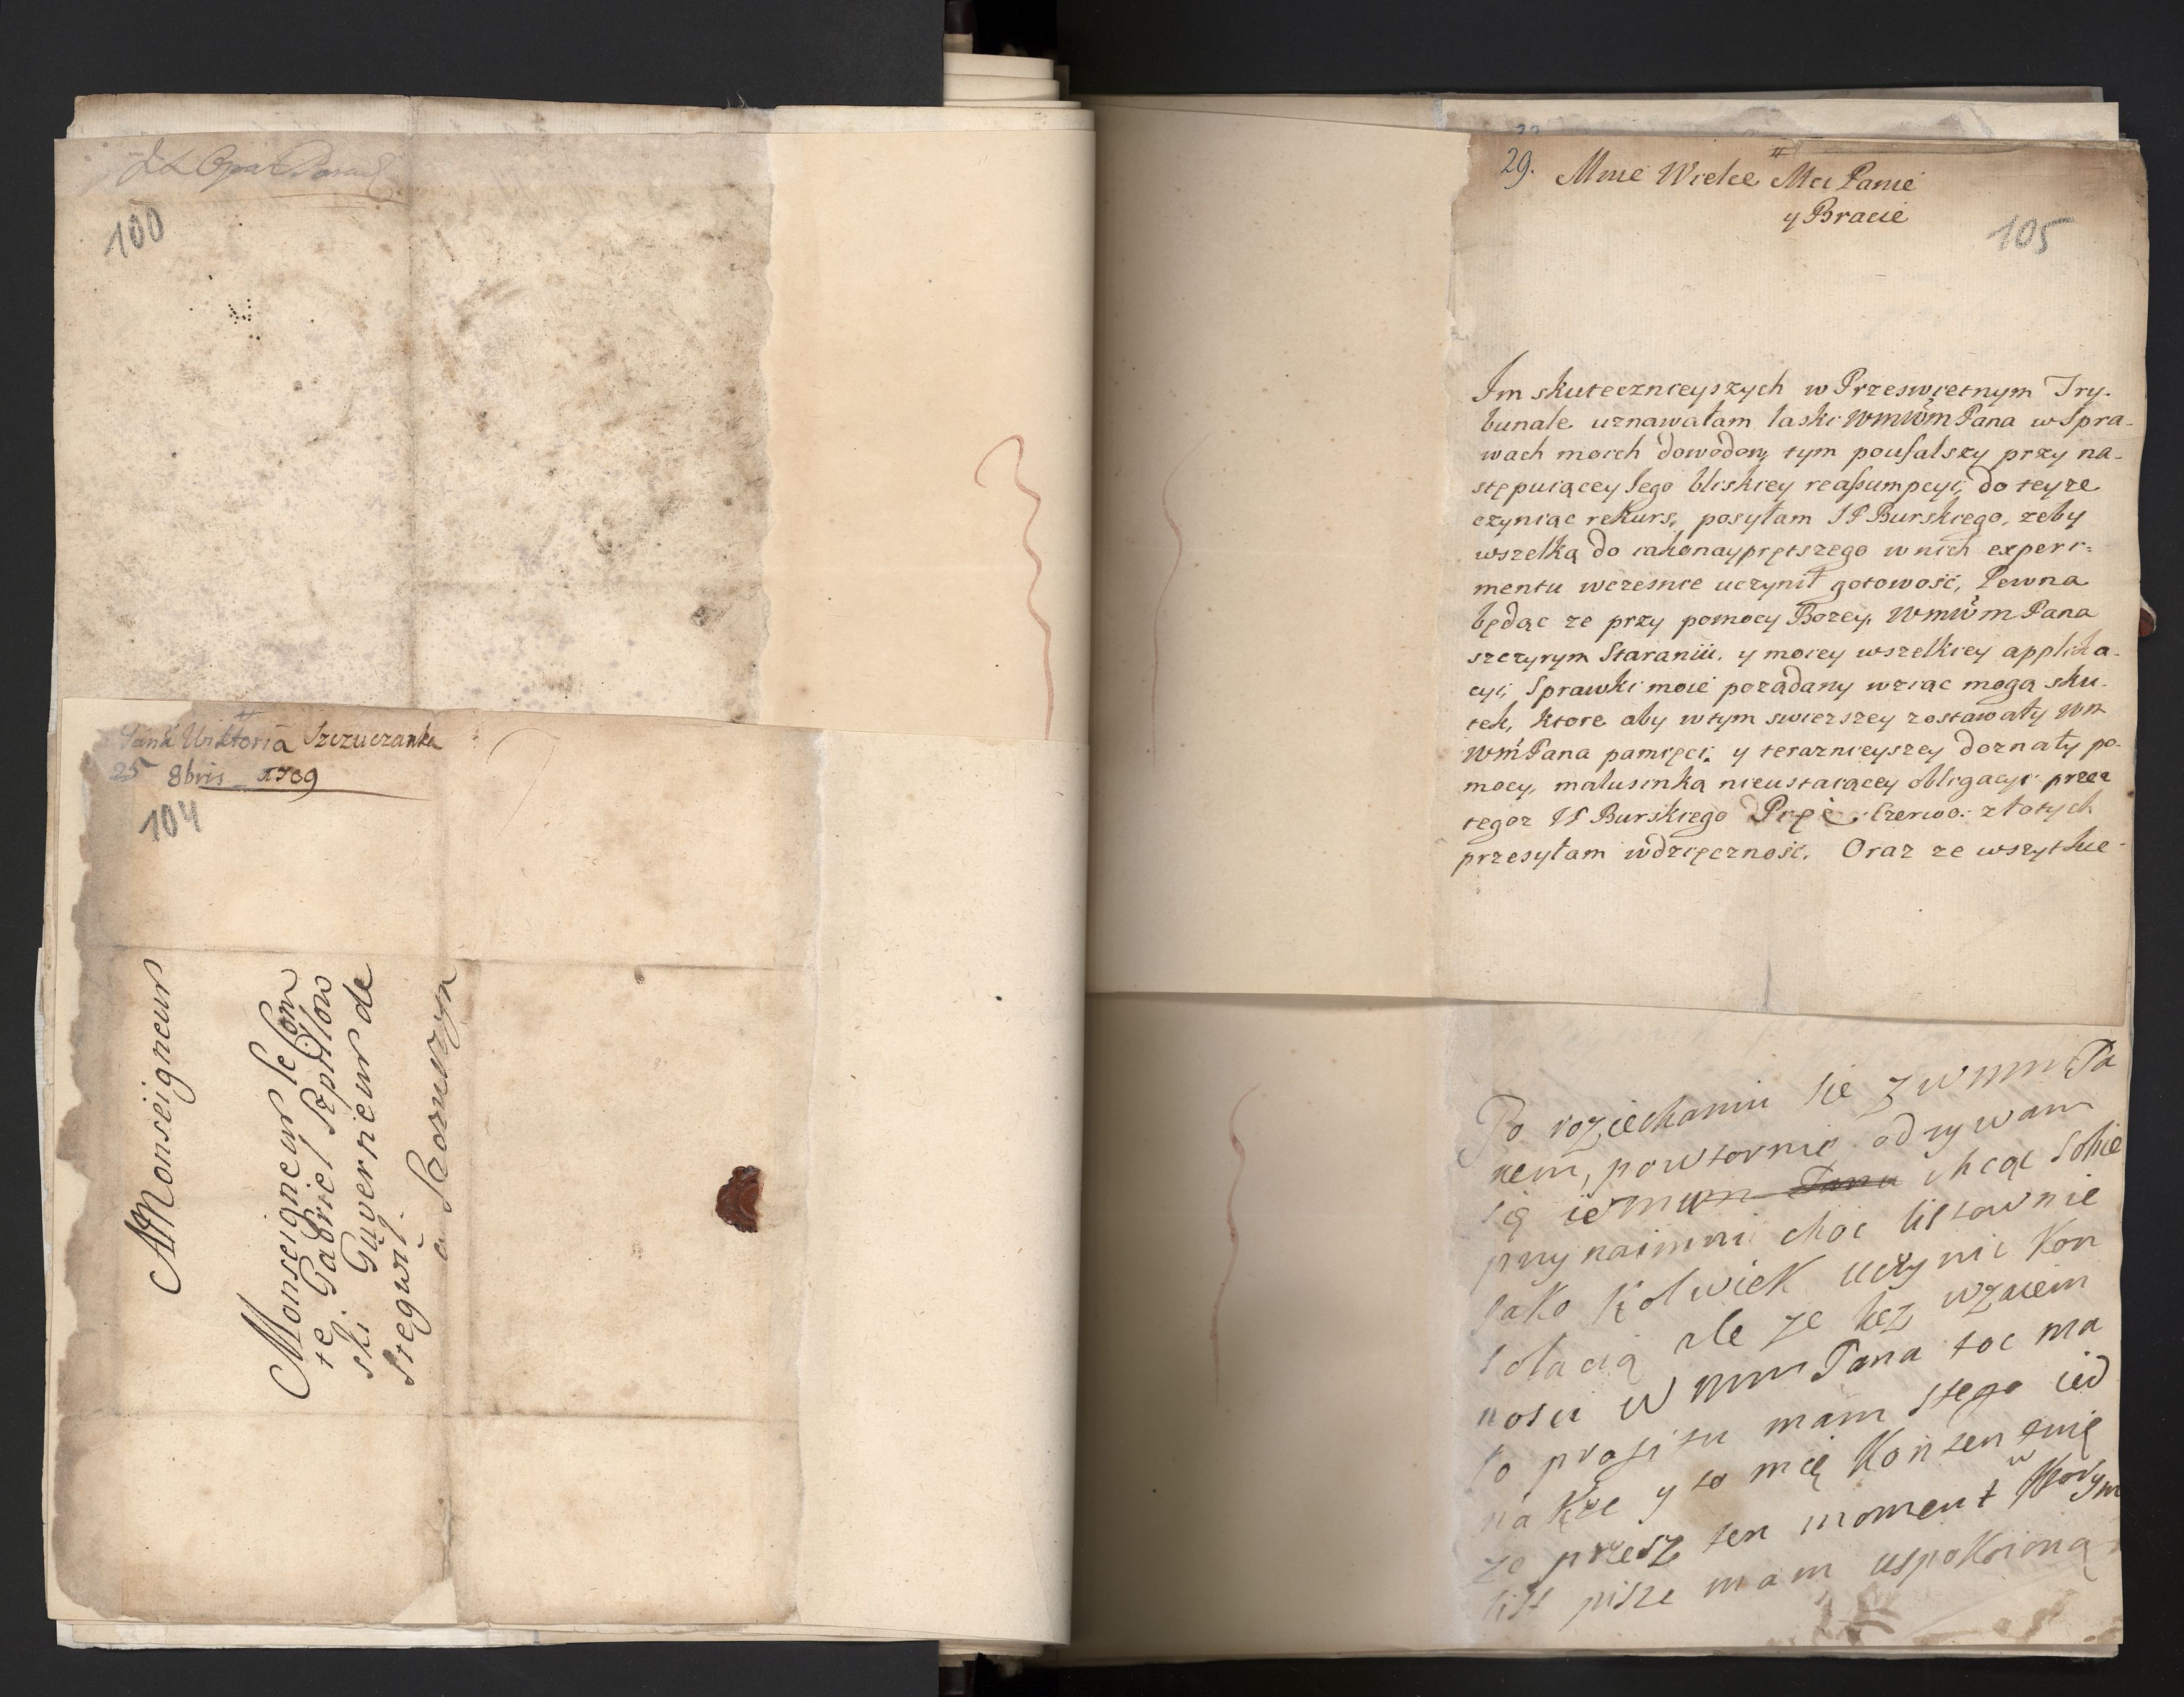 100
Panna Wiktoria Szczuczanka
25 8bris 1709
104
A Monseigneur
Monseigneur le Com
te Gabriel Szpiłow
ski. Guvernieur de
Stęgwił.
a Szczuczyn
29.
Mnie Wielce Mci Panie
y Bracie
105
Im skutecznieyszych w Przeswietnym Try-
bunale uznawałam łaski WMWM Pana w Spra-
wach moich dowodow, tym poufalszy przy na-
stępuiącey Jego bliskiey reassumpcyi, do teyze
czyniąc rekurs, posyłam JP Burskiego, zeby
wszelką do iakonayprętszego w nich experi-
mentu wczesnie uczynił gotowość, Pewna
będąc ze przy pomocy Bozey, WMWM Pana
szczyrym Staraniu, y moiey wszelkiey applika-
cyi, Sprawki moie pozadany wziąc mogą sku-
tek, ktore aby w tym swierszey zostawały WM
WM Pana pamięci, y teraznieyszey doznały po-
mocy, malusinką nieustaiącey obligacyi przez
tegoz JP Burskiego Pięć Czerwo: złotych
przesyłam wdzięczność. Oraz ze wszytkie-
Po roziechaniu sie z wmm Pa
nem, powtornie odzywam
się ie mwm Panu chcąc sobie
przynaimni choc listownie
Jako Kolwiek uczynic Kon
solacią ale ze bez wzaiem
nosci W mm Pana toc ma
to profitu mam stego ied
nakze y to mię Kontentuię
ze przesz ten moment w Ktorym
list pisze mam uspokoioną